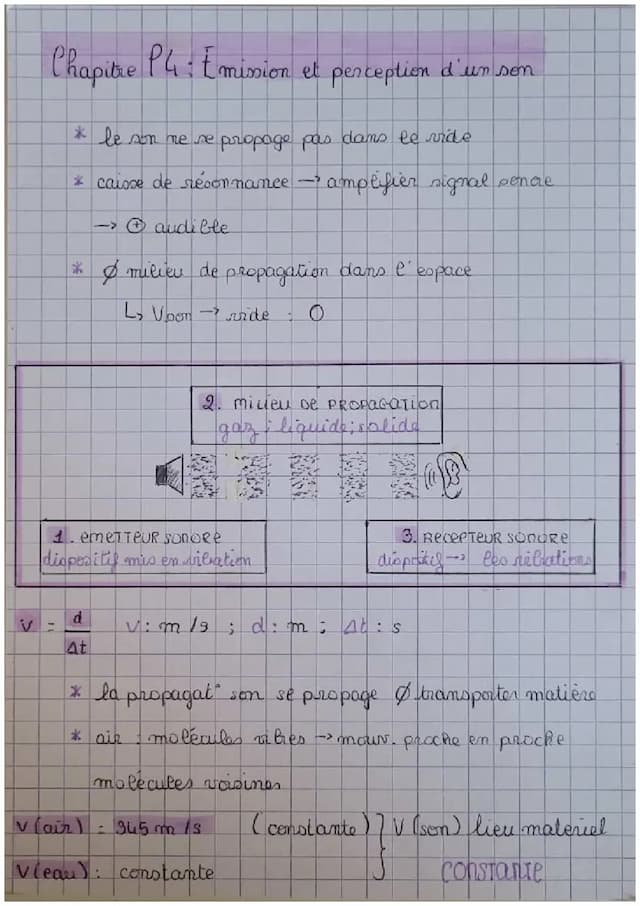 Chapitre P4 : Émission et perception d'un son
* le son ne se propage pas dans le vide
* caisse de résonnance → amplifier signal sonore
→ ⊕ audible
* Ø milieu de propagation dans l'espace
↳ Vson → vide : 0
2. MILIEU DE PROPAGATION
gaz ; liquide ; solide
1. EMETTEUR SONORE
dispositif mis en vibration
3. RECEPTEUR SONORE
dispositif → les vibrations
v = d / Δt   v : m/s ; d : m ; Δt : s
* la propagat° son se propage Ø transporter matière
* air : molécules vibrés → mouv. proche en proche
molécules voisines
V(air) = 345 m/s (constante) } V(son) lieu materiel
V(eau) : constante constante